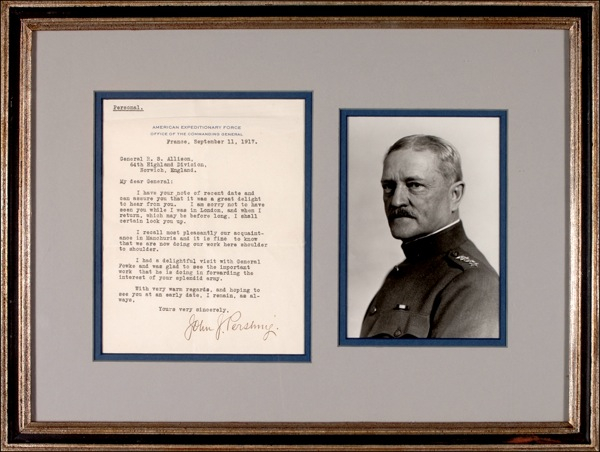 Personal.
AMERICAN EXPEDITIONARY FORCE
OFFICE OF THE COMMANDING GENERAL
France, September 11, 1917.
General R. S. Allison,
64th Highland Division,
Norwich, England.
My dear General:
I have your note of recent date and
can assure you that it was a great delight
to hear from you. I am sorry not to have
seen you while I was in London, and when I
return, which may be before long, I shall
certain look you up.
I recall most pleasantly our acquaint-
ance in Manchuria and it is fine to know
that we are now doing our work here shoulder
to shoulder.
I had a delightful visit with General
Fowke and was glad to see the important
work that he is doing in forwarding the
interest of your splendid army.
With very warm regards, and hoping to
see you at an early date, I remain, as al-
ways,
Yours very sincerely,
John J. Pershing.